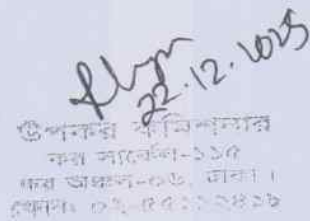 22.12.2025
উপকর কমিশনার
কর সার্কেল-১১৫
কর অঞ্চল-০৬, ঢাকা।
ফোনঃ